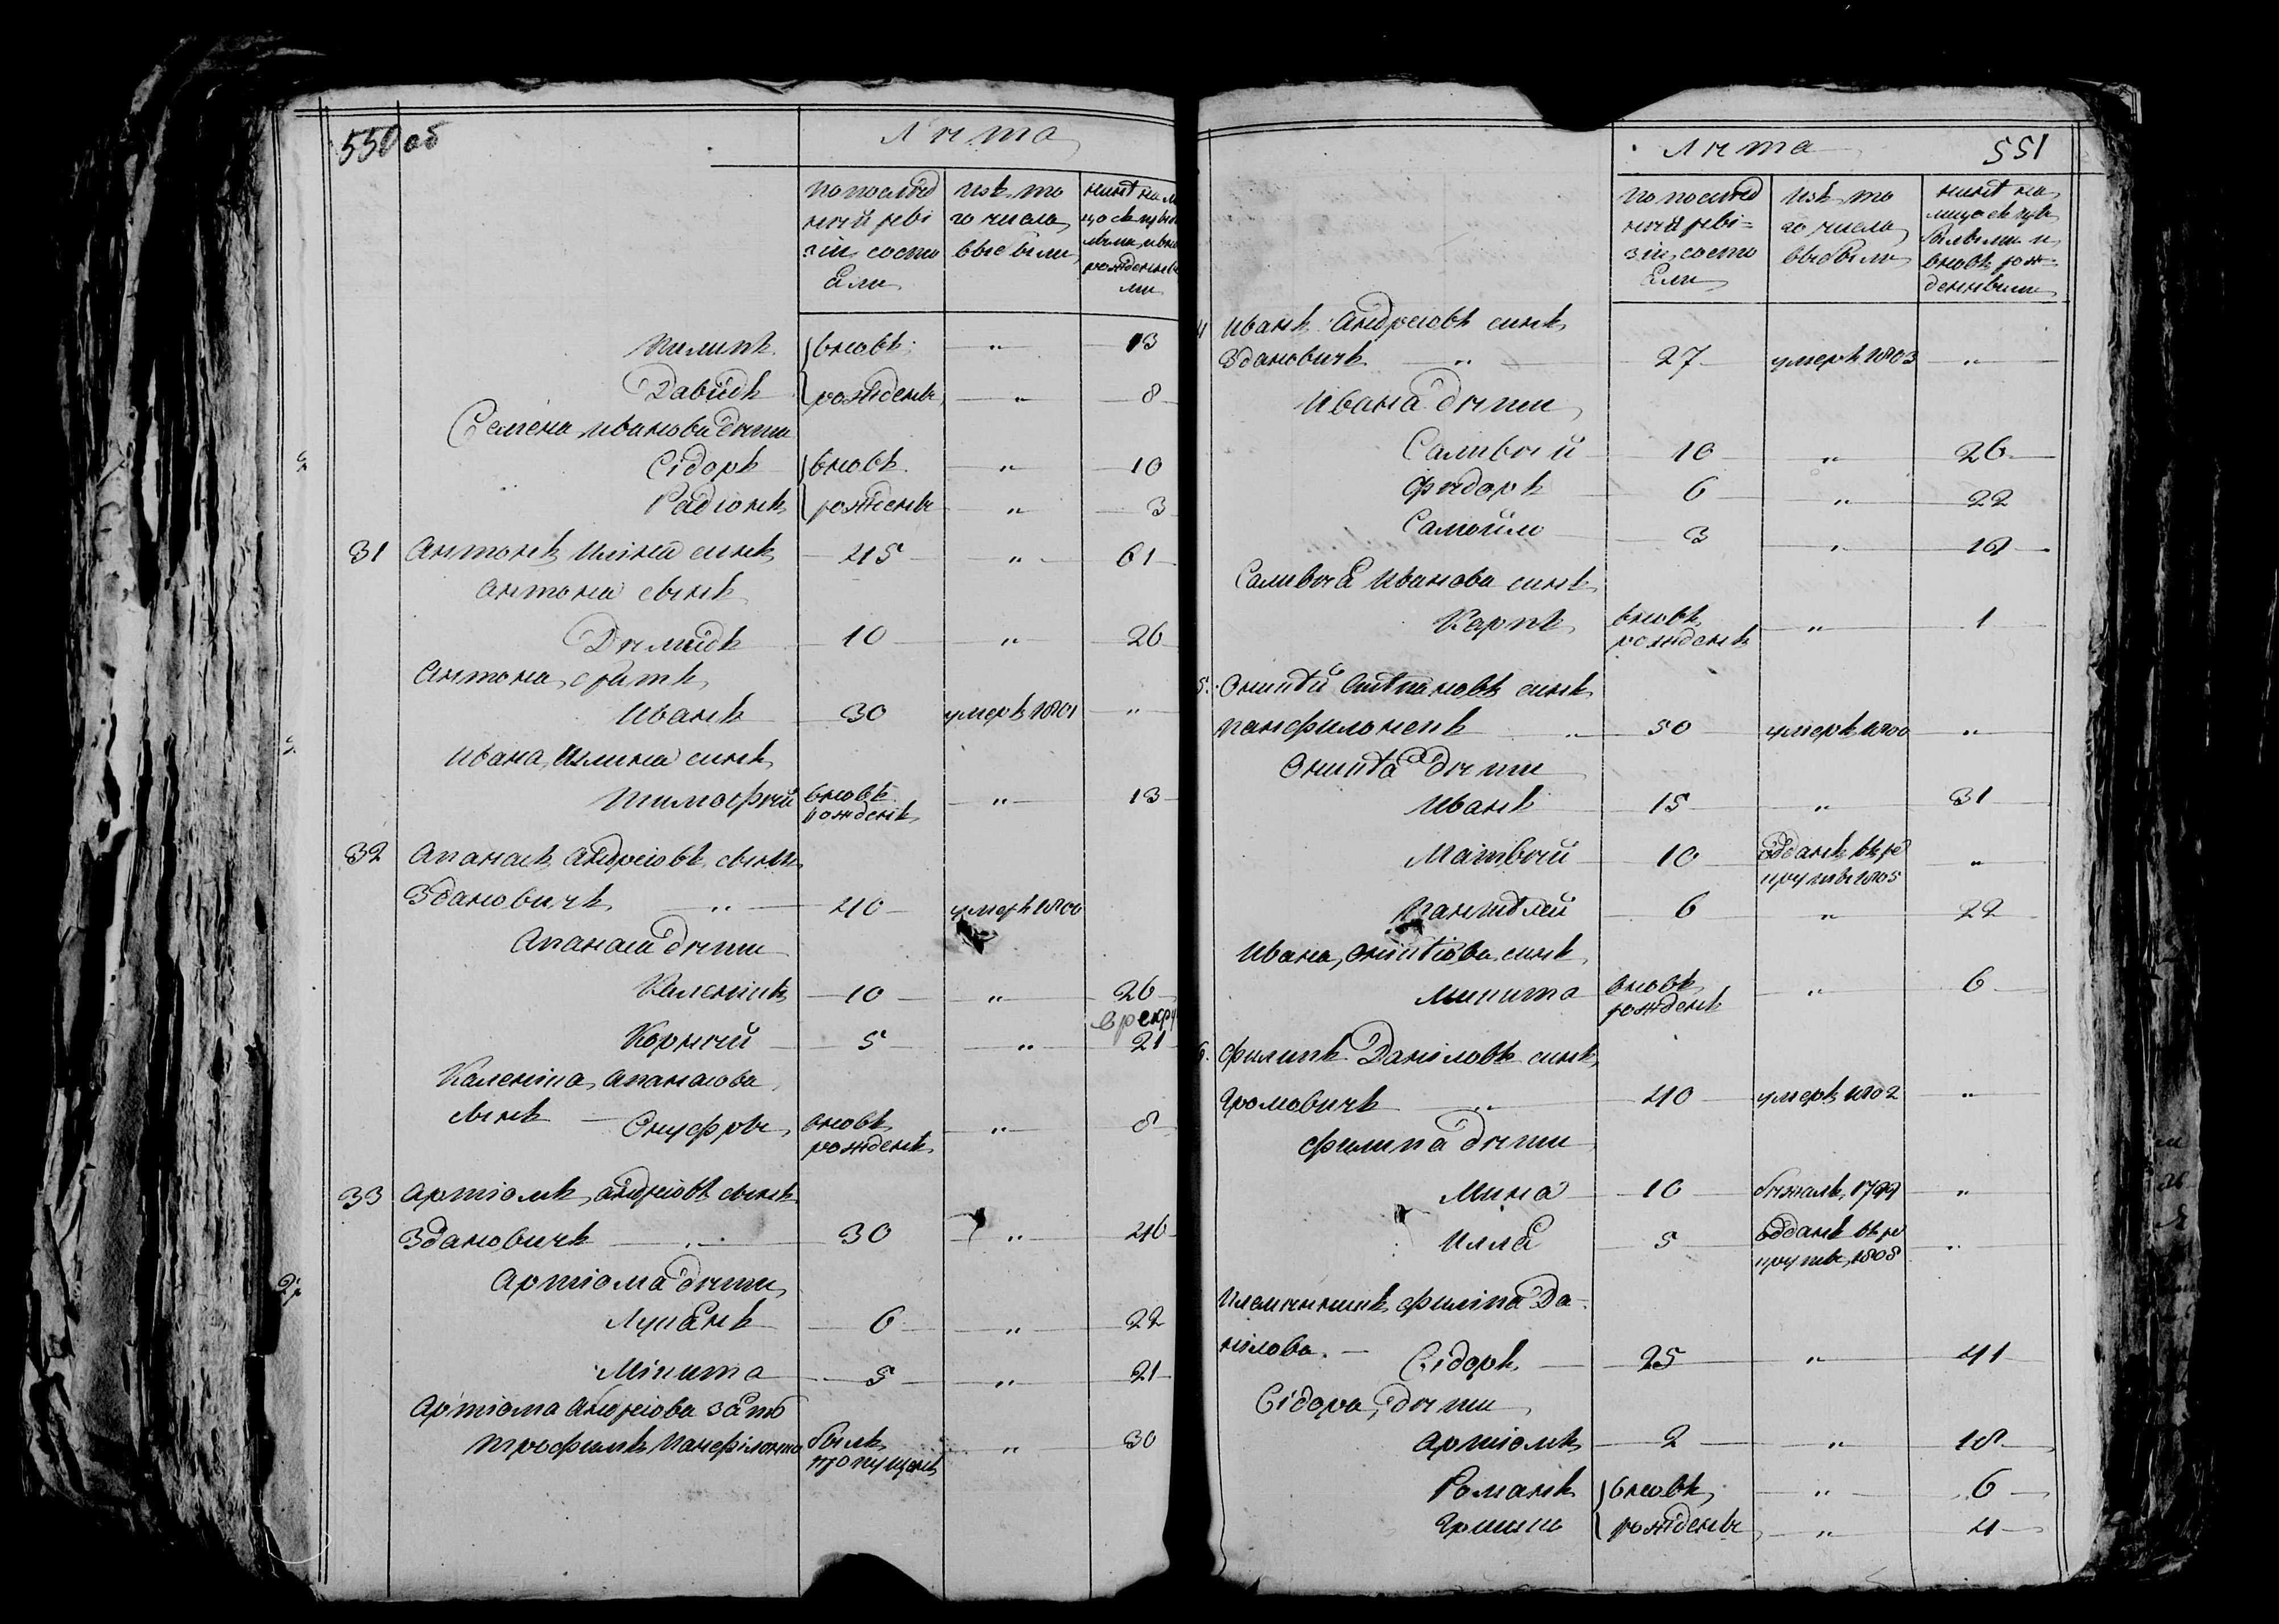 550 об
Лѣта
по послѣд
ней реві
зіи состо
яли
изъ то
го числа
выбыли
нинѣ на
рожденны
ми
Пилипъ } вновь " 13
Давидъ } рождены " 8
Семена Иванова дѣти
Сідоръ } вновь " 10
Радіонъ } рождены " 3
31 Антонъ Иліинъ синъ 45 " 61
Антона сынъ
Демидъ 10 " 26
Антона братъ
Иванъ 30 умеръ 1801 "
Ивана Иллина синъ
Тимофѣй вновь рожденъ " 13
32 Апанасъ Андреіовъ сынъ
Здановичъ " 40 умеръ 1800
Апанаса дѣти
Каленікъ 10 " 26
в рекру
Корнѣй 5 " 21
Каленіка Апанасова
сынъ Онуфрей вновь рожденъ " 8
33 Артіомъ Андреіовъ сынъ
Здановичъ " 30 " 46
Артіома дѣти
Лукянъ 6 " 22
Мікита 5 " 21
Артіома Андреіова зять
Трофимъ Панфіленко былъ пропущенъ " 30
Лѣта 551
по послѣд
ней реві=
зіи состо
яли
изъ то
го числа
выбыли
нинѣ на
лицо съ при
былыми и
вновь рож=
денными
4 Иванъ Андреіовъ синъ
Здановичъ " 27 умеръ 1803 "
Ивана дѣти
Саливѣй 10 " 26
Фѣдоръ 6 " 22
Самойло 3 " 19
Саливѣя Иванова синъ
Карпъ вновь рожденъ " 1
5. Оникѣй Степановъ синъ
Панфиленкъ " 50 умеръ 1800 "
Оникѣя дѣти
Иванъ 15 " 31
Матвѣй 10 отданъ въ ре
круты 1805 "
Пантелѣй 6 " 22
Ивана Оникѣіова синъ
Микита вновь рожденъ " 6
6. Филипъ Даніловъ синъ
Громовичъ " 40 умеръ 1802 "
Филипа дѣти
Мина 10 бѣжалъ 1799 "
Илля 5 отданъ въ ре
круты 1808 "
Племѣнникъ Филіпа Да=
нілова. Сідоръ 25 " 41
Сідора дѣти
Артіомъ 2 " 18
Романъ } вновь " 6
Грицко } рождены " 4